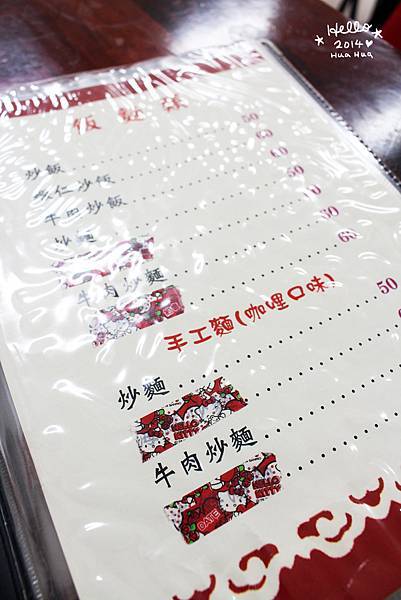 Hello
2014
Hua Hua
飯麵類
炒飯 50
蝦仁炒飯 60
牛肉炒飯 60
炒麵 50
牛肉炒麵 60
手工麵(咖哩口味)
炒麵 50
HELLO KITTY
牛肉炒麵
HELLO KITTY
DATE